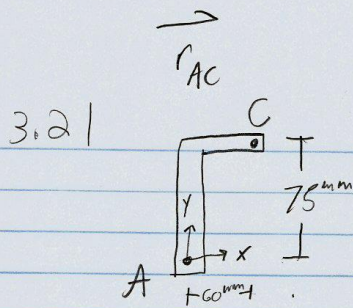 r AC
3.21
C
75 mm
Y
X
A
60 mm